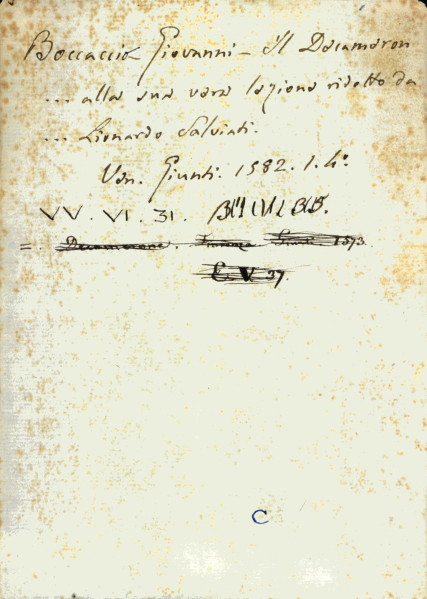 Boccaccio Giovanni - Il Decameron
... alla sua vera lezione ridotto da
... Lionardo Salviati.
Ven. Giunti. 1582. 1. 4°
VV. VI. 31.
=. Decamerone. Firenze Giunti 1573.
E V 37.
C